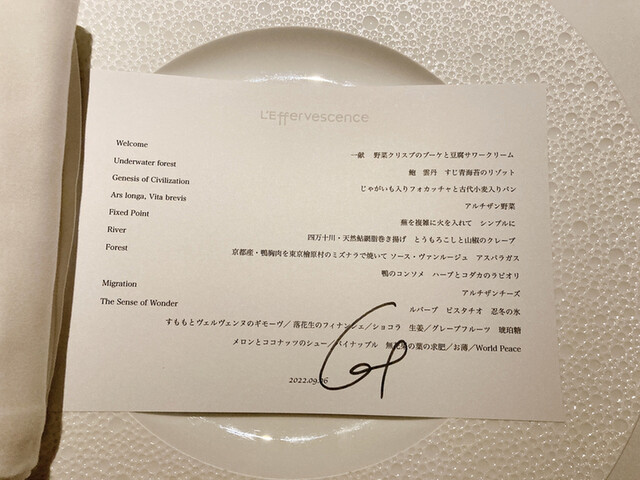 L'Effervescence
Welcome
一献　野菜クリスプのブーケと豆腐サワークリーム
Underwater forest
鮑　雲丹　すじ青海苔のリゾット
Genesis of Civilization
じゃがいも入りフォカッチャと古代小麦入りパン
Ars longa, Vita brevis
アルチザン野菜
Fixed Point
蕪を複雑に火を入れて　シンプルに
River
四万十川・天然鮎網脂巻き揚げ　とうもろこしと山椒のクレープ
Forest
京都産・鴨胸肉を東京檜原村のミズナラで焼いて ソース・ヴァンルージュ　アスパラガス
鴨のコンソメ　ハーブとコダカのラビオリ
アルチザンチーズ
Migration
ルバーブ　ピスタチオ　忍冬の氷
The Sense of Wonder
すももとヴェルヴェンヌのギモーヴ／ 落花生のフィナンシェ／ショコラ　生姜／グレープフルーツ　琥珀糖
メロンとココナッツのシュー／パイナップル　無花果の葉の求肥／お薄／World Peace
2022.09.06